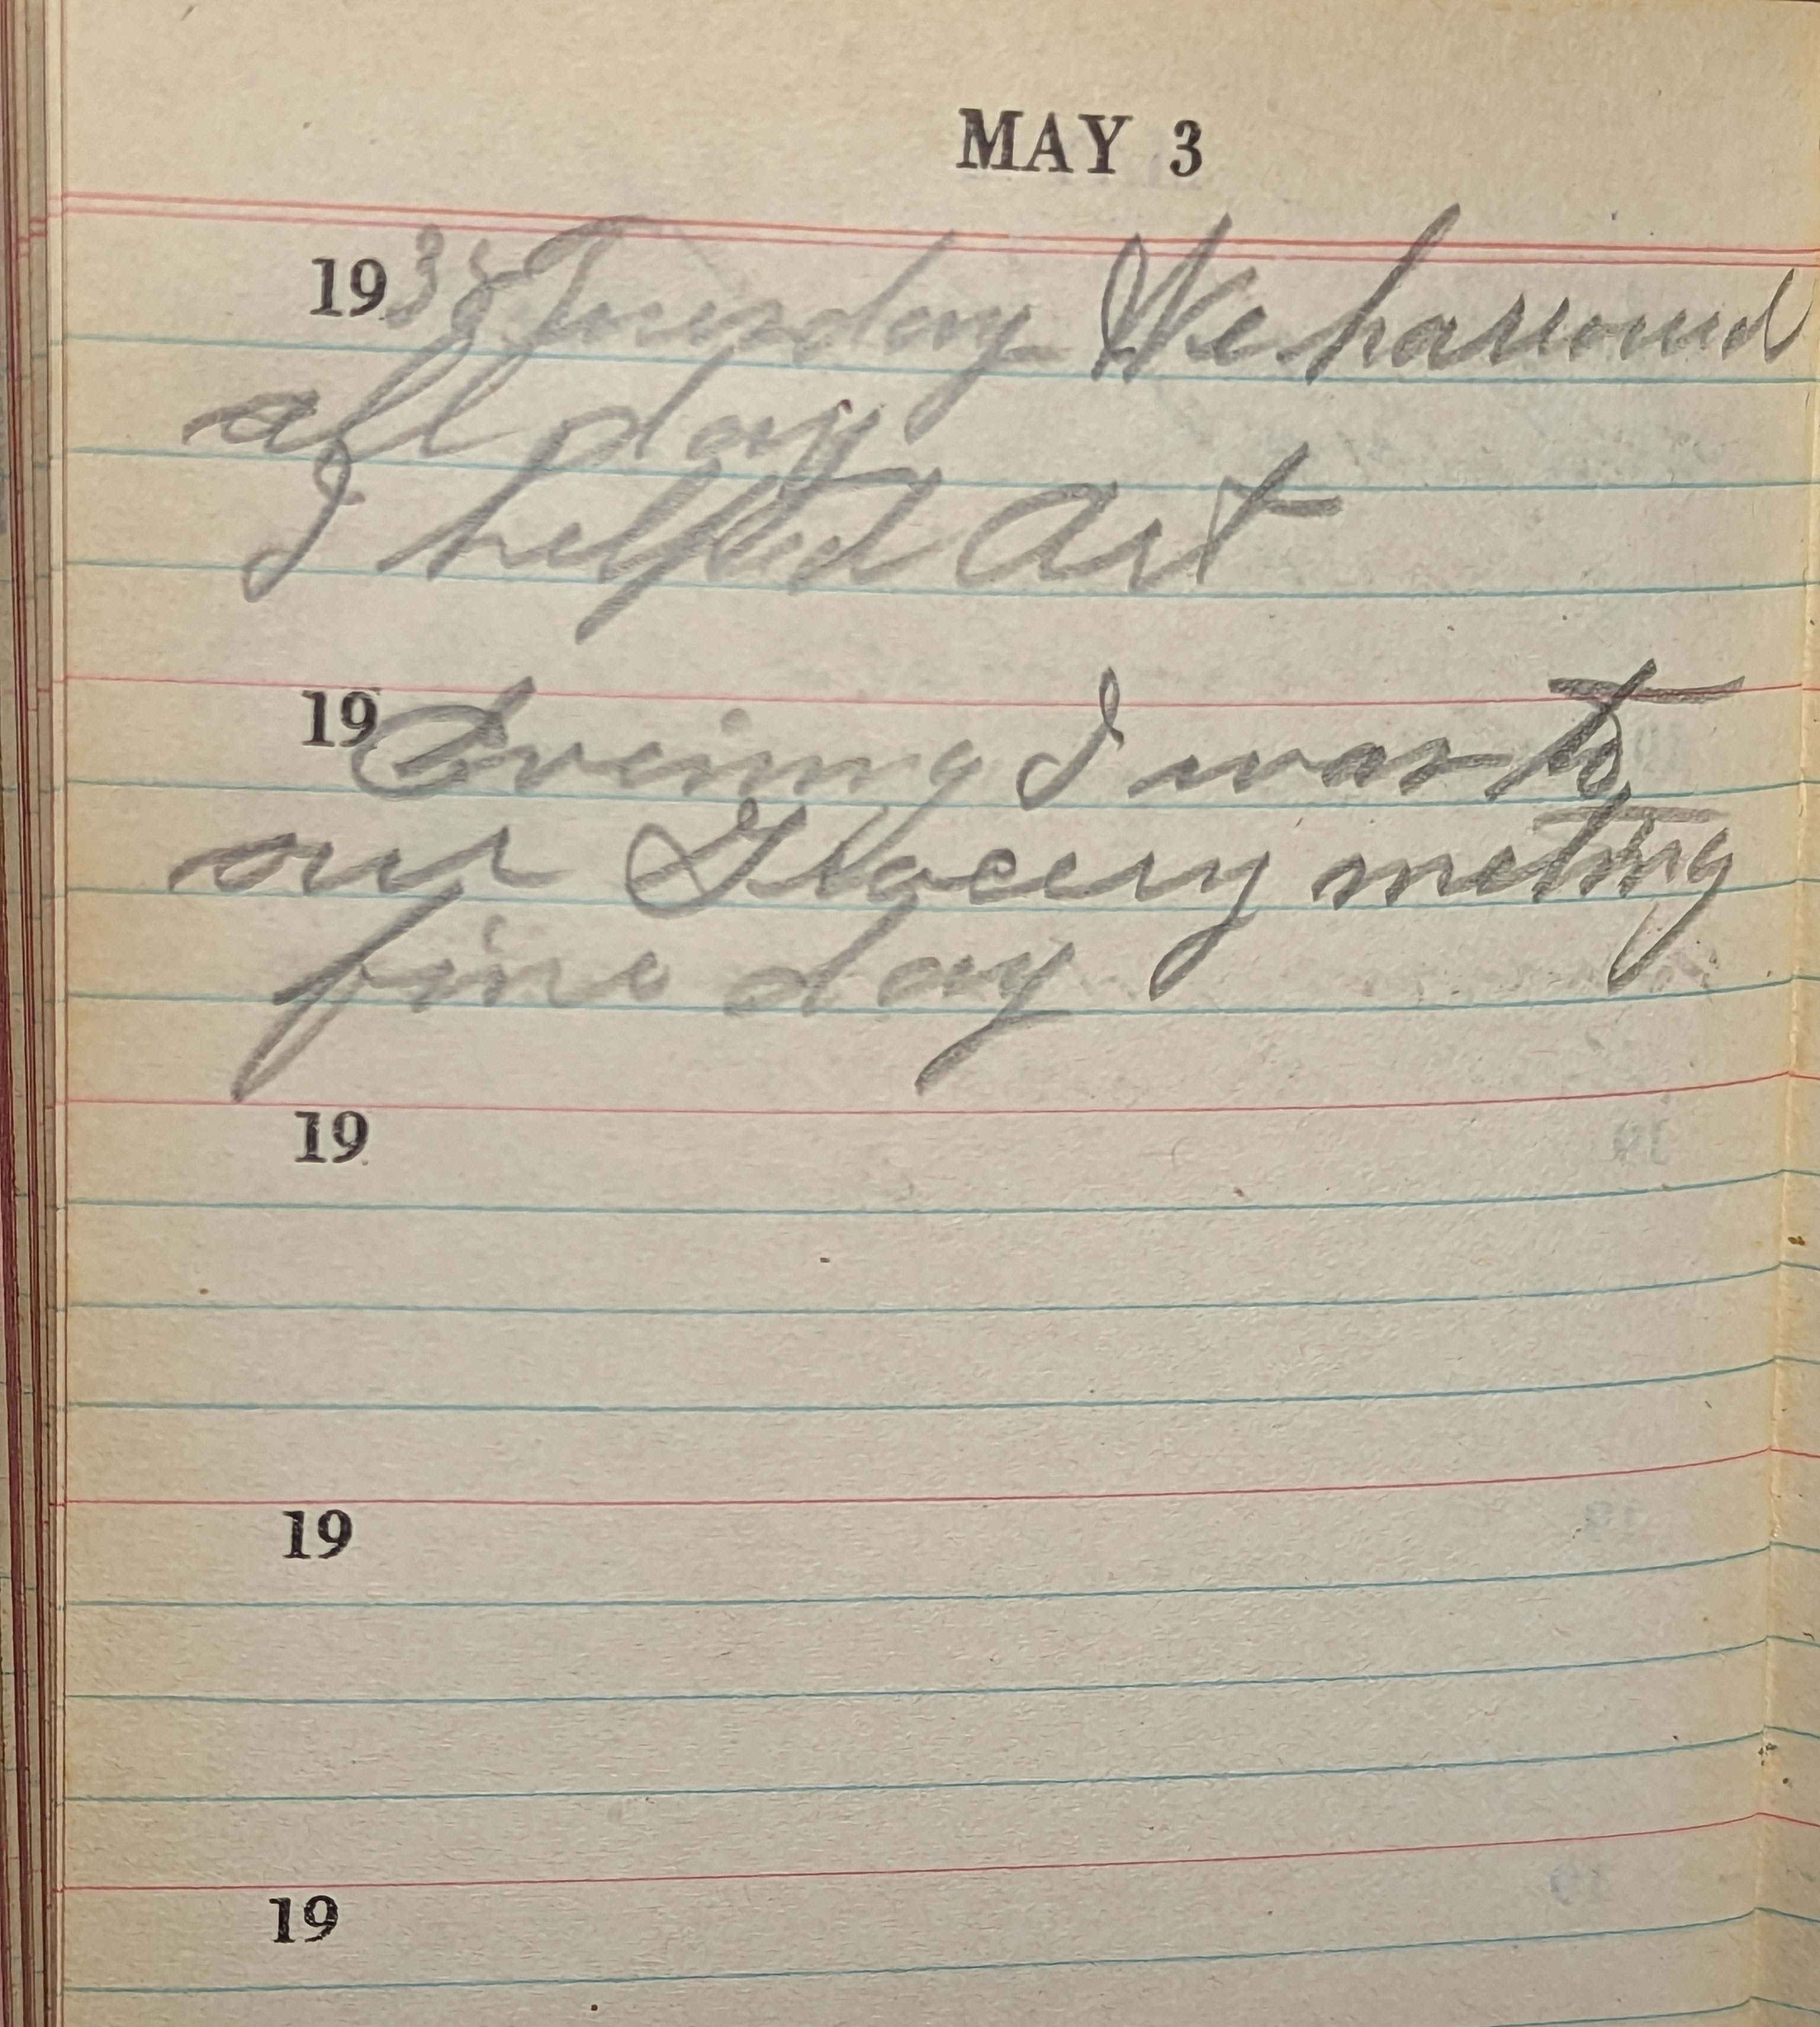 MAY 3
1938 Tuesday We harrowed
all day
I helped Art
19 Evening I was to
our Grocery meting
fine day
19
19
19